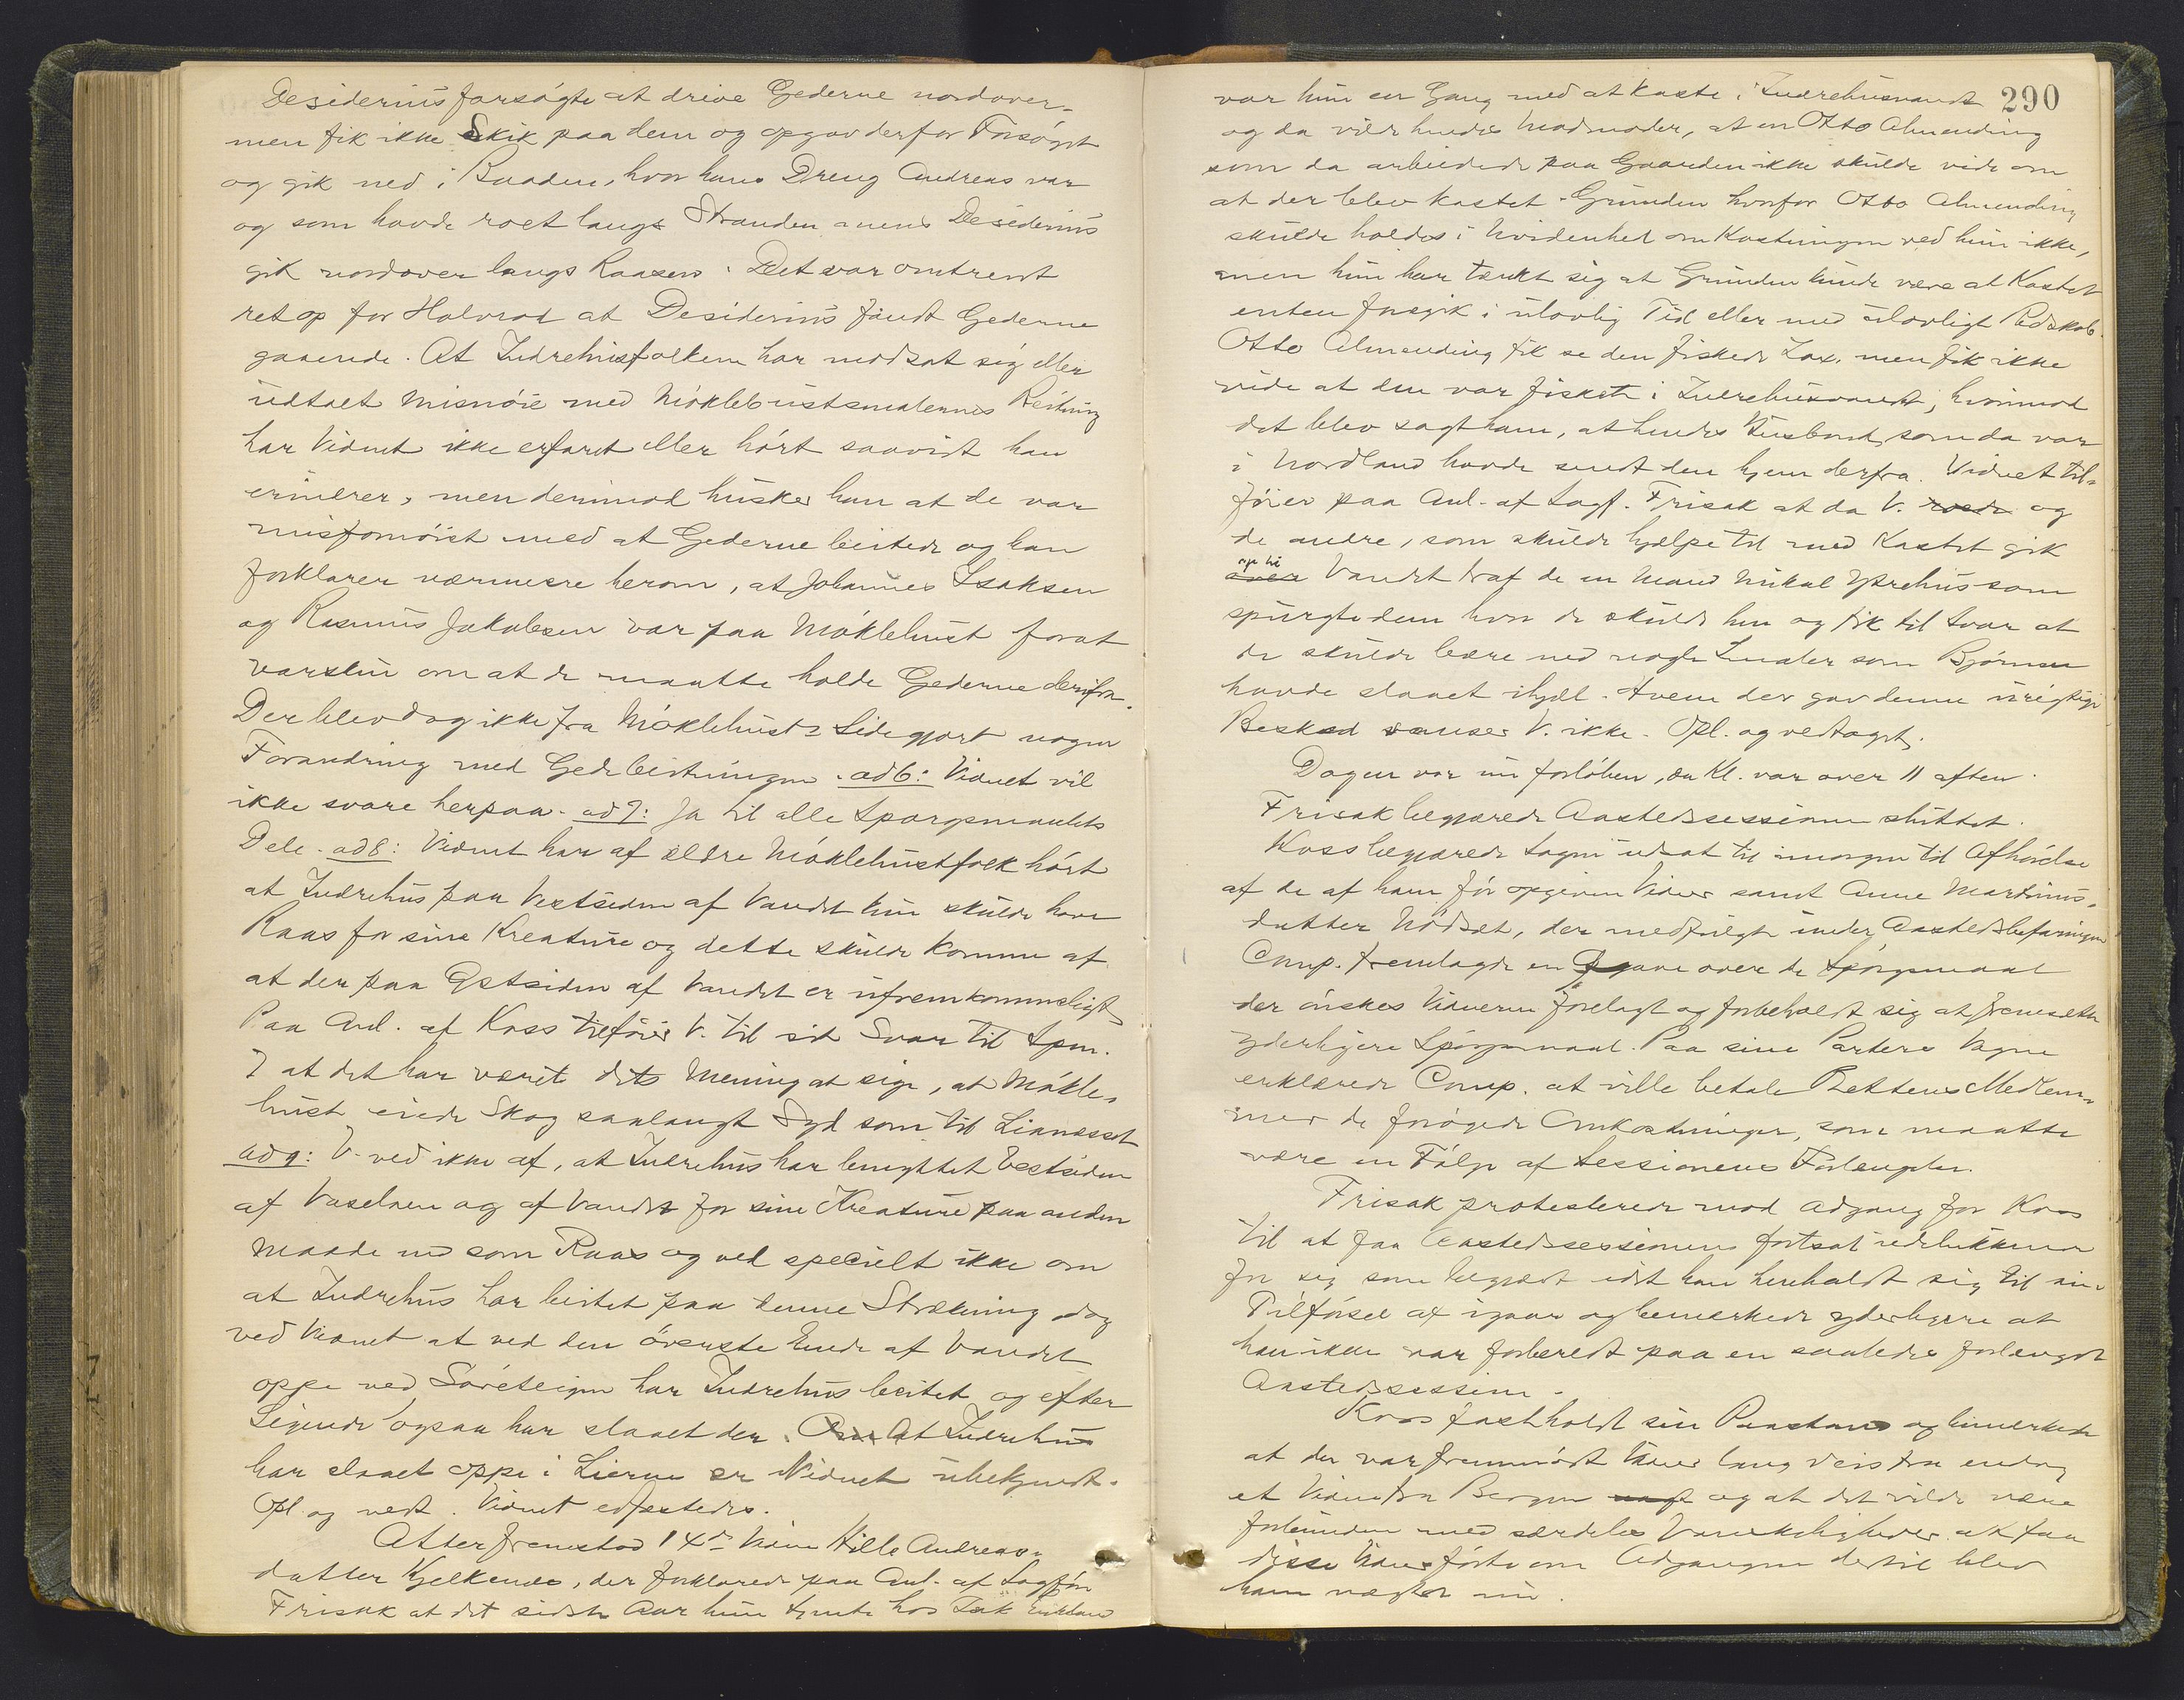 Desiderius forsøgte at drive Gederne nordover-
men fik ikke Skik paa dem og opgav derfor Forsøget
og gik ned i Baaden, hvor hans Dreng Andreas var
og som havde roet langs Stranden mens Desiderius
gik nordover langs Raasen. Det var omtrent
ret op for Holvrod at Desiderius fandt Gederne
gaaende. At Indrehusfolkene har modsat sig eller
udtalt Misnøie med Møklebustsmalernes Beitning
har Vidnet ikke erfaret eller hørt saavidt han
erindrer, men derimod husker han at de var
misfornøiet med at Gederne beitede og han
forklarer nærmere herom, at Johannes Isaksen
og Rasmus Jakobsen var paa Møklebust forat
varsku om at de maatte holde Gederne derifra.
Der blev dog ikke fra Møklebusts Side gjort nogen
Forandring med Gedebeitningen. ad 6: Vidnet vil
ikke svare herpaa. ad 7: Ja til alle Spørgsmaalets
Dele. ad 8: Vidnet har af ældre Møklebustfolk hørt
at Indrehus paa Vestsiden af Vandet kun skulde have
Raas for sine Kreature og dette skulde komme af
at der paa Østsiden af Vandet er ufremkommeligt
Paa Anl. af Koss tilføier V. til sit Svar til Spm.
7 at det har været dets Mening at sige, at Møkle-
bust eiede Skog saalangt Syd som til Lianesset
ad 9: V. ved ikke af, at Indrehus har benyttet Vestsiden
af Vaselven og af Vandet for sine Kreature paa anden
Maade end som Raas og ved specielt ikke om
at Indrehus har beitet paa denne Strækning dog
ved Vidnet at ved den øverste Ende af Vandet
oppe ved Søreteigen har Indrehus beitet og efter
Sigende ogsaa har slaaet der. At Indrehus
har slaaet oppe i Lierne er Vidnet ubekjendt.
Opl. og vedt. Vidnet edfæstedes.
Atter fremstod 14de Vidne Hille Andreas-
datter Kjelkenes, der forklarede paa Anl. af Sagfør
Frisak at det sidste Aar hun tjente hos Isak
290
var hun en Gang med at kaste i Indrehusvandet
og da vilde hendes Madmoder, at en Otto Almending
som da arbeidede paa Gaarden ikke skulde vide om
at der blev kastet. Grunden hvorfor Otto Almending
skulde holdes i Uvidenhed om Kastningen ved hun ikke,
men hun har tænkt sig at Grunden kunde være at Kastet
enten foregik i ulovlig Tid eller med ulovligt Redskab.
Otto Almending fik se den fiskede Lax, men fik ikke
vide at den var fisket i Indrehusvandet, hvorimod
det blev sagt ham, at hendes Husbond, som da var
i Nordland havde sendt den hjem derfra. Vidnet til-
føier paa Anl. af Sagf. Frisak at da V. roede og
de andre, som skulde hjelpe til med Kastet gik
op til Vandet traf de en Mand Mikal Ytrehus som
spurgte dem hvor de skulde hen og fik til Svar at
de skulde bære ned nogle Smaler som Bjørnen
havde slaaet ihjel. Hvem der gav denne urigtige
Besked sanser V. ikke. Opl. og vedtaget.
Dagen var nu forløben, da Kl. var over 11 aften.
Frisak begjærede Aastedssessionen sluttet.
Koss begjærede Sagen udsat til imorgen til Afhørelse
af de af ham før opgivne Vidner samt Anne Martinus-
datter Nødset, der medfulgte under Aastedsbefaringen
Comp. fremlagde en Opgave over de Spørgsmaal
der ønskes Vidnerne forelagt og forbeholdt sig at fremsætte
yderligere Spørgsmaal. Paa sine Parters Vegne
erklærede Comp. at ville betale Rettens Medlem-
mer de forøgede Omkostninger, som maatte
være en Følge af Sessionens Forlængelse.
Frisak protesterede mod Adgang for Koss
til at faa Aastedssessionen fortsat udelukkende
for sig som begjært idet han henholdt sig til sin
Tilførsel af igaar og bemærkede yderligere at
han ikke var forberedt paa en saaledes forlænget
Aastedssession.
Koss fastholdt sin Paastand og bemærkede
at der var fremmødt Vidner lang Veis fra endog
et Vidne fra Bergen og at det vilde være
forbunden med særdeles Vanskeligheder at faa
disse Vidner førte om Adgangen dertil blev
ham nægtet nu.